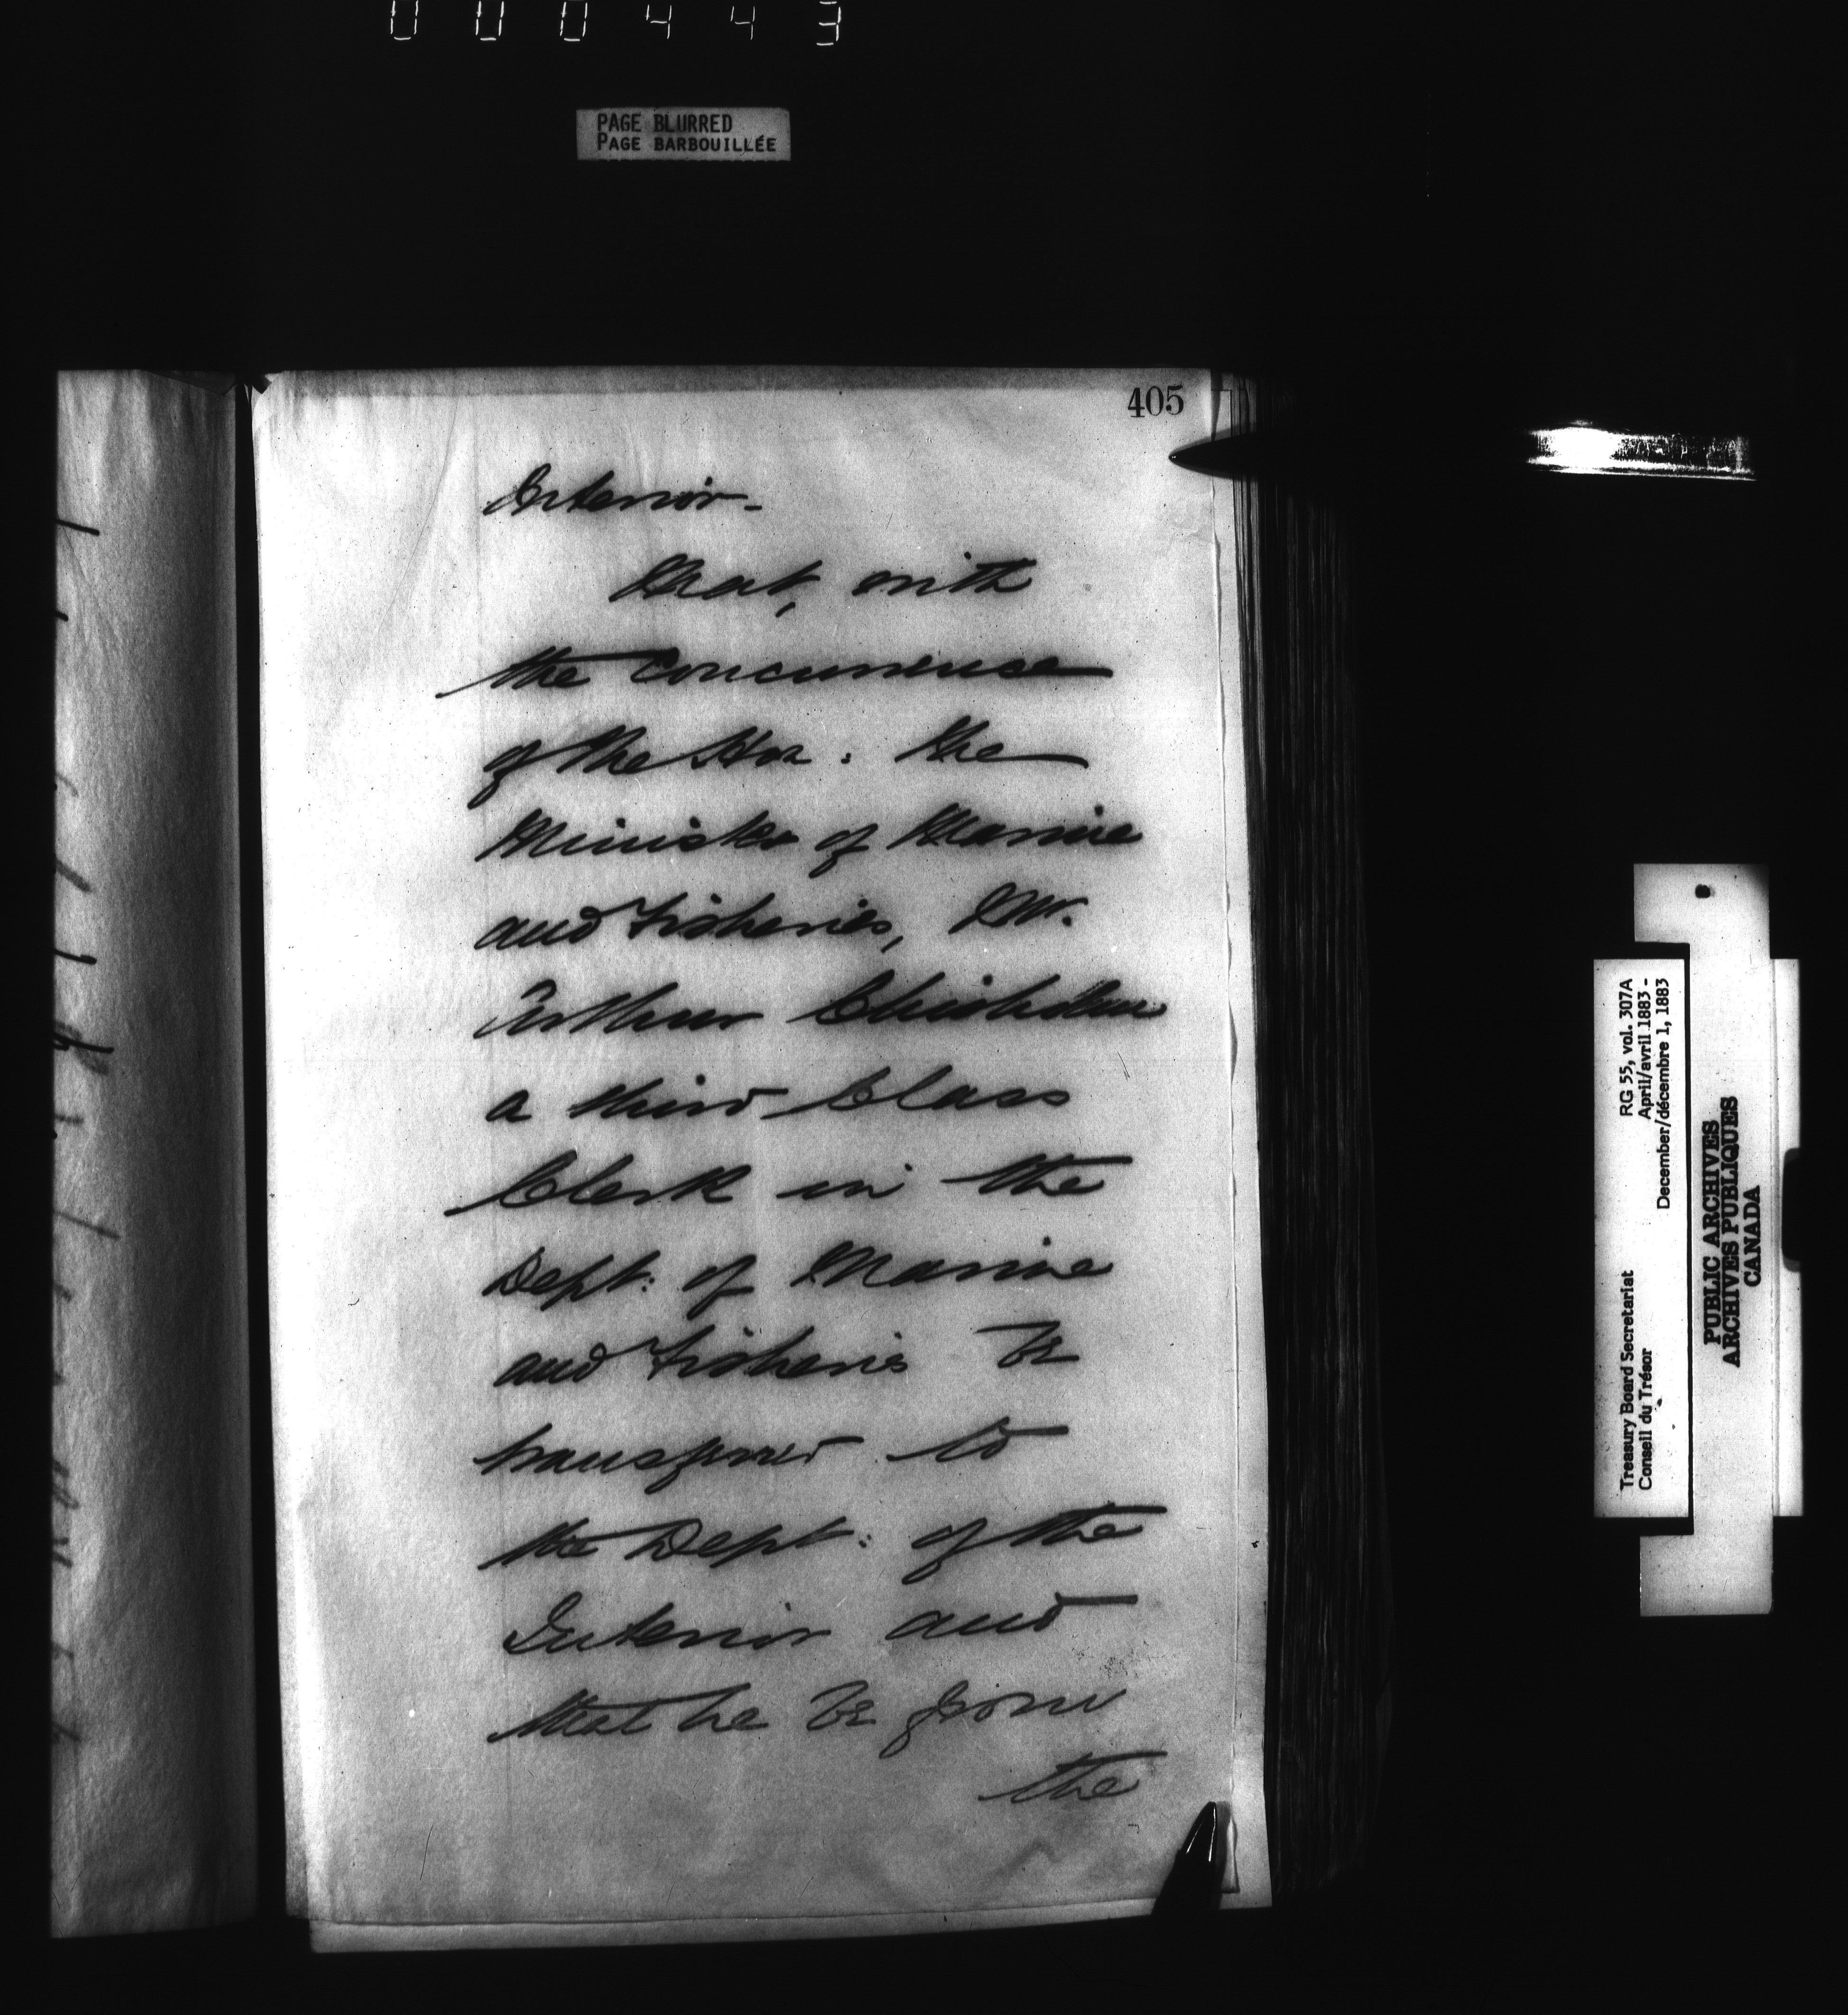 000443
PAGE BLURRED
PAGE BARBOUILLÉE
405
Interior -
That, with
the concurrence
of the Hon: the
Minister of Marine
and Fisheries, Mr.
Arthur Chisholm
a third Class
Clerk in the
Dept: of Marine
and Fisheries be
transferred to
the Dept: of the
Interior and
that he be from
the
Treasury Board Secretariat
Conseil du Trésor
RG 55, vol. 307A
April/avril 1883 -
December/décembre 1, 1883
PUBLIC ARCHIVES
ARCHIVES PUBLIQUES
CANADA